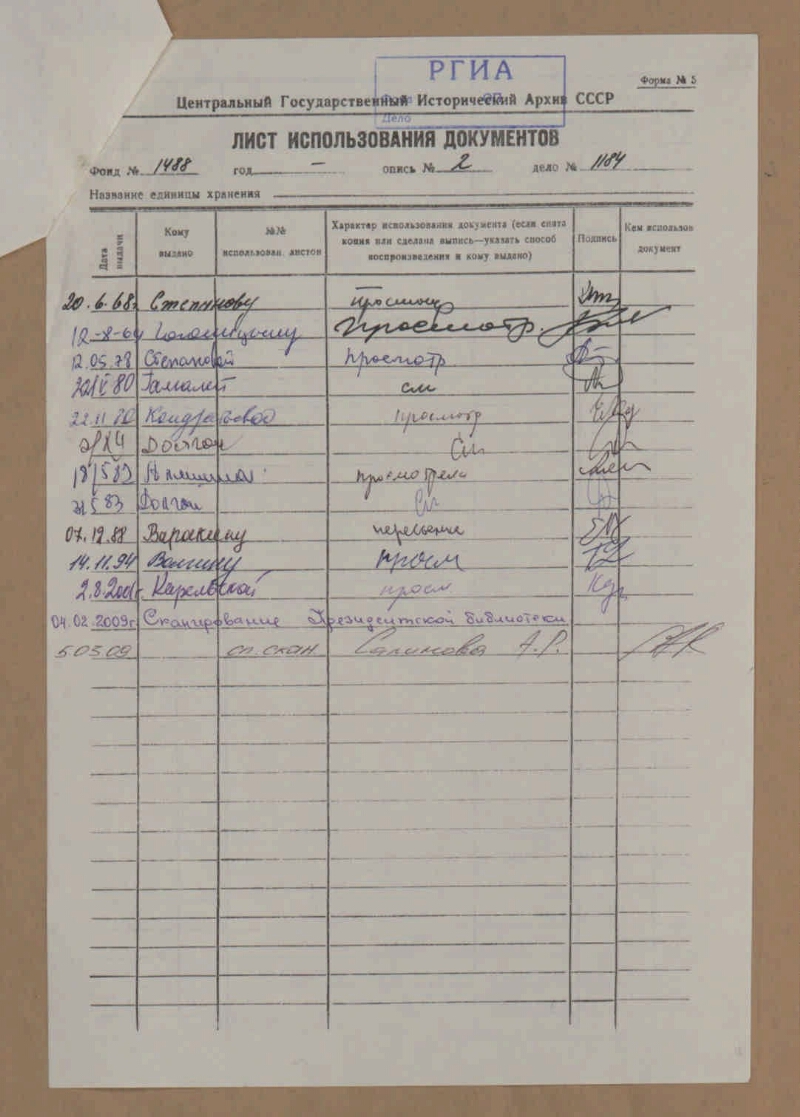 РГИА
Форма № 5
Центральный Государственный Исторический Архив СССР
Дело
ЛИСТ ИСПОЛЬЗОВАНИЯ ДОКУМЕНТОВ
Фонд № 1488 год — опись № 2 дело № 1184
Название единицы хранения
Дата выдачи
Кому выдано
№№ использован. листов
Характер использования документа (если снята копия или сделана выпись—указать способ воспроизведения и кому выдано)
Подпись
Кем использов документ
20.6.68 Степанову просмотр
12-8-69 Просмотр.
12.05.78 Степановой просмотр
80 Гамалея см
22.11.80 Кондратьевой просмотр
Долгон См
18/5 83 просмотрела
5 83 Долгон См
07.12.88 Варакину пересъемка
14.11.94 Волчину просм
2.8.2001г. Карельской просм.
04.02.2009г. Сканирование Президентской библиотеки
5 03 09 сл. скан. Салимова А.Р.